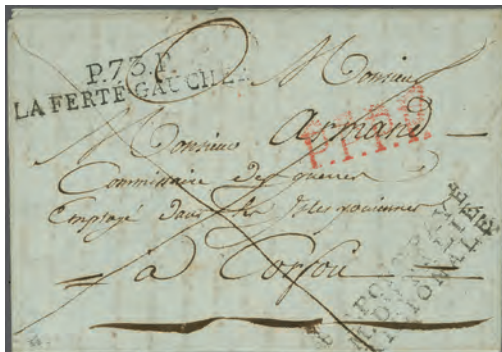 P.73.P.
LA FERTE GAUCHER
Monsieur
Monsieur Armand
P.P.P.P.
Commissaire des guerres
Employé dans les isles ioniennes
à Corfou